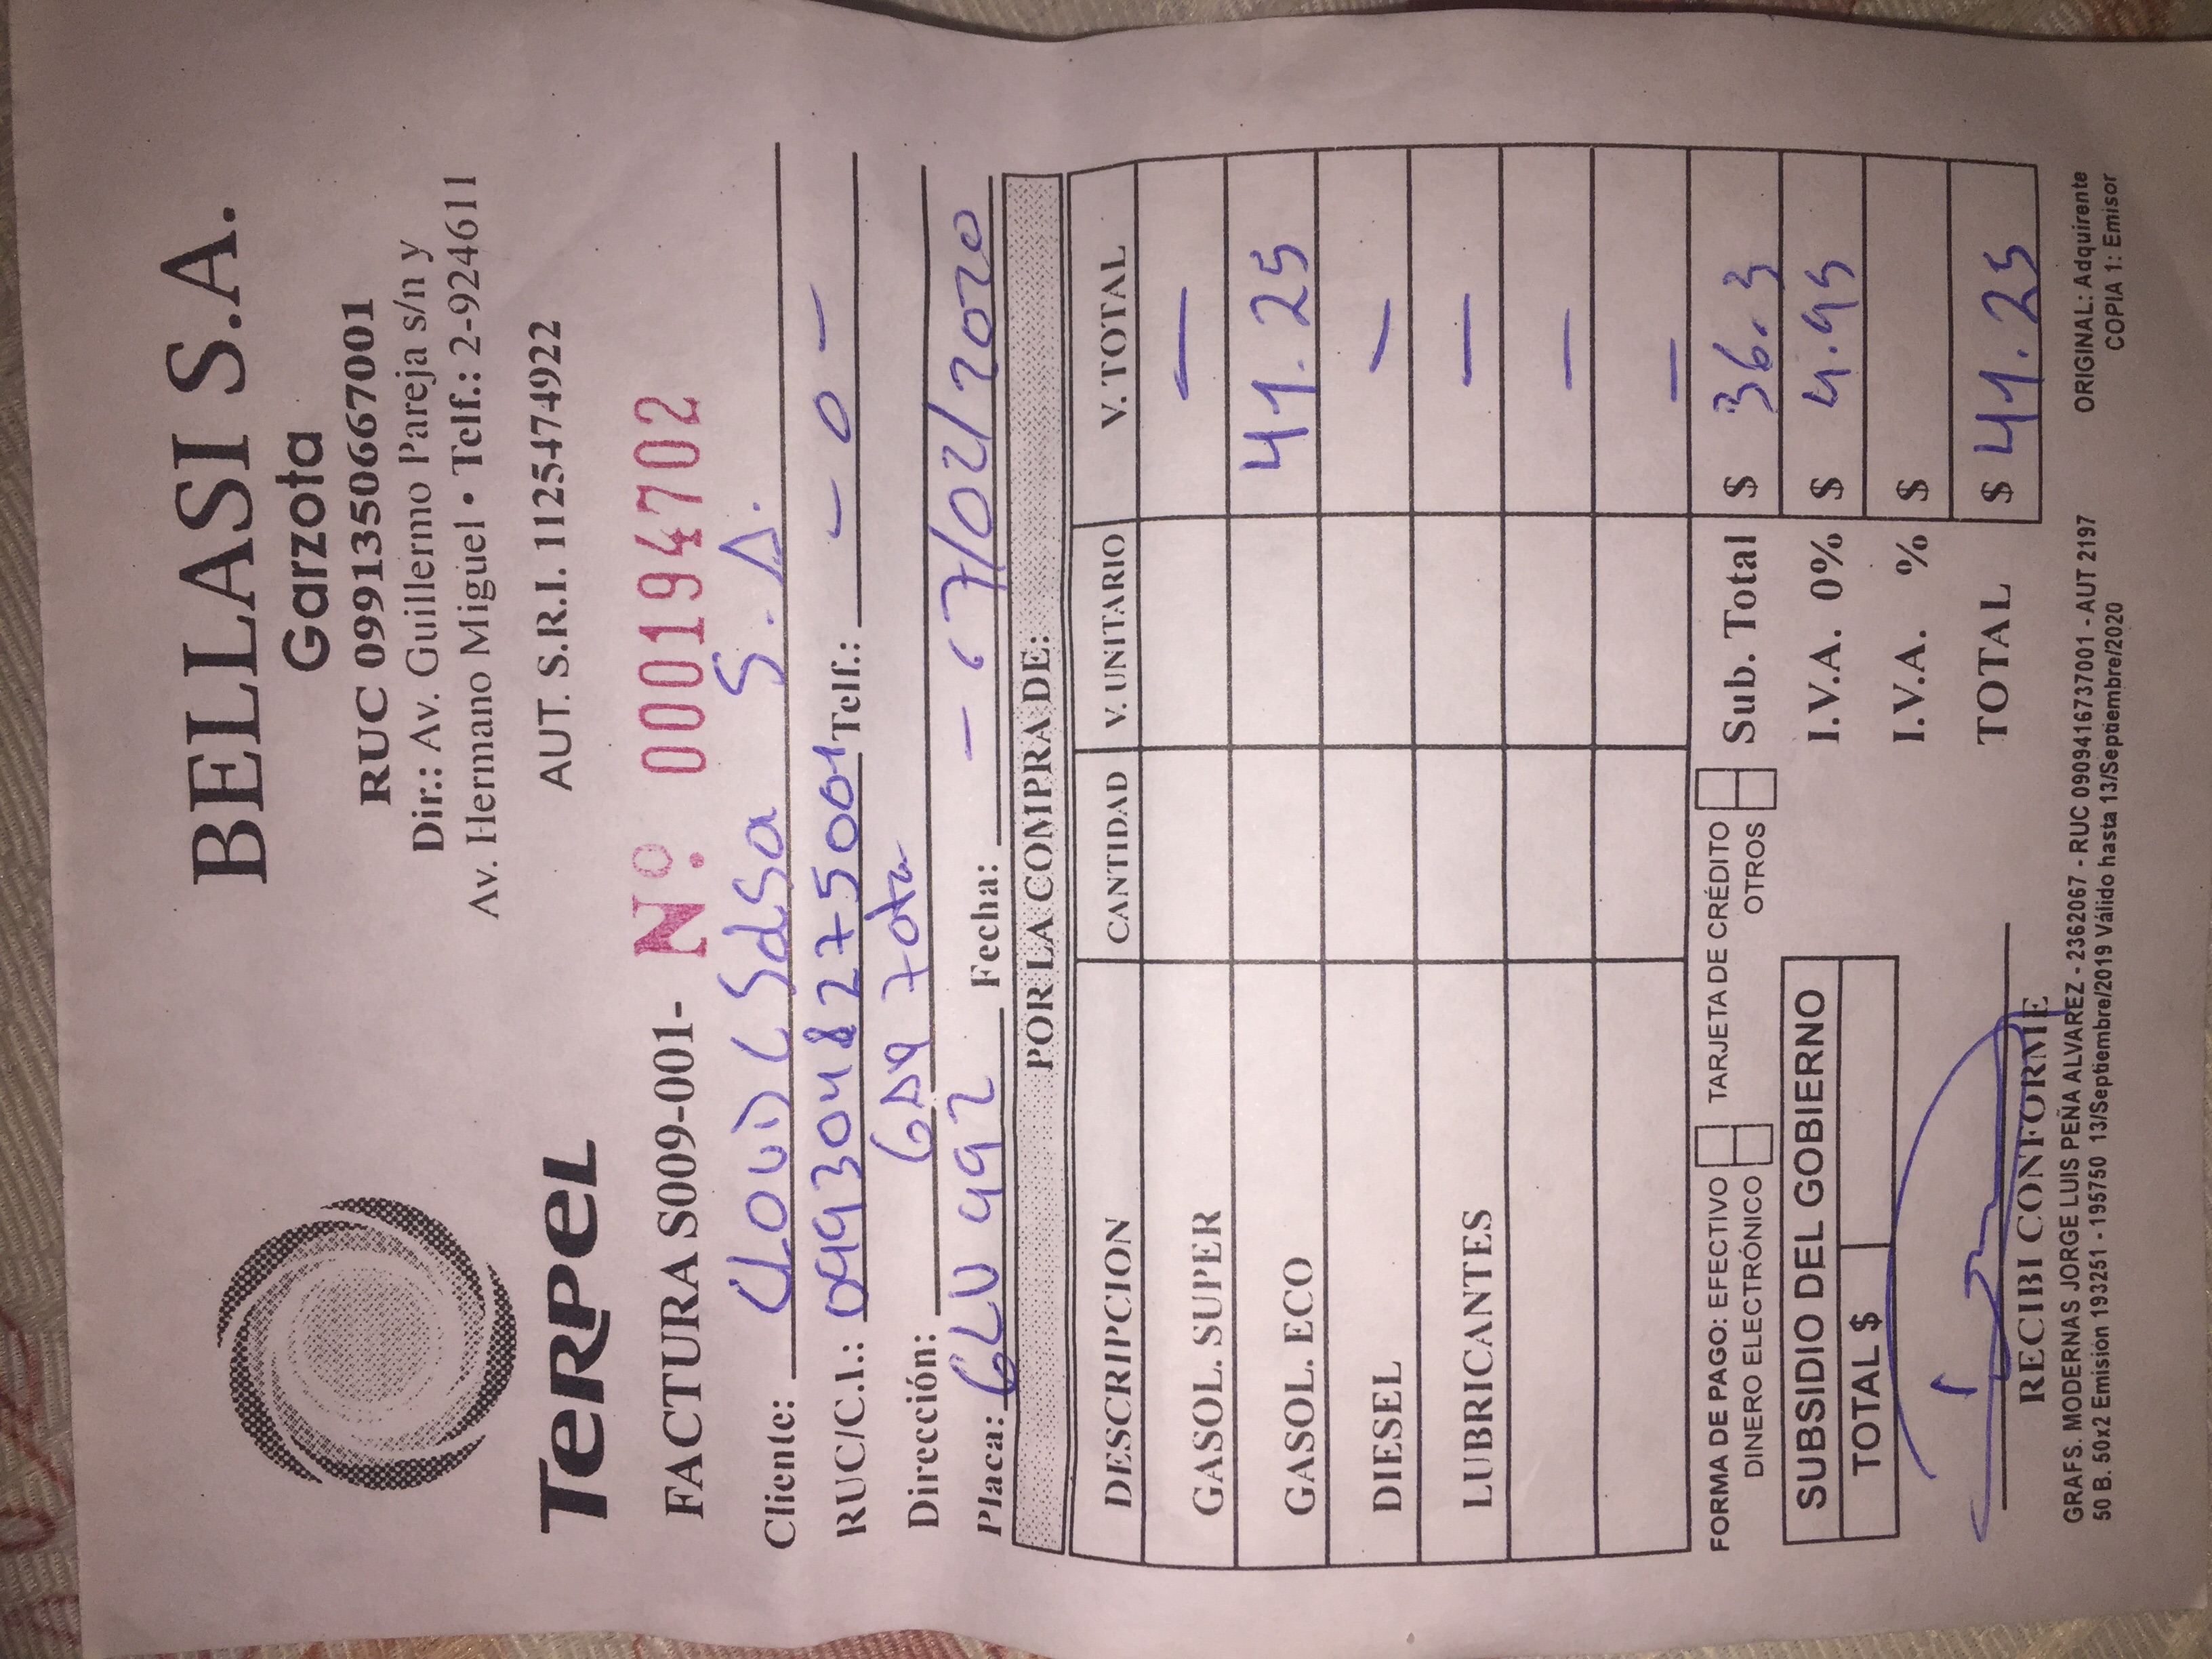 BELLASI S.A.
Garzota
RUC 0991350667001
Dir.: Av. Guillermo Pareja s/n y
Av. Hermano Miguel • Telf.: 2-924611
TERPEL
AUT. S.R.I. 1125474922
FACTURA S009-001- Nº 000194702
Cliente: S.A.
RUC/C.I.: 0993048275001 Telf.: - 0 -
Dirección:
Placa: GLU 992 Fecha: 07/02/2020
POR LA COMPRA DE:
DESCRIPCION CANTIDAD V. UNITARIO V. TOTAL
GASOL. SUPER —
GASOL. ECO 41.25
DIESEL —
LUBRICANTES —
—
—
FORMA DE PAGO: EFECTIVO TARJETA DE CRÉDITO
DINERO ELECTRÓNICO OTROS
Sub. Total $ 36.3
SUBSIDIO DEL GOBIERNO
TOTAL $
I.V.A. 0% $ 4.95
I.V.A. % $
TOTAL $ 41.25
RECIBI CONFORME
GRAFS. MODERNAS JORGE LUIS PEÑA ALVAREZ - 2362067 - RUC 0909416737001 - AUT 2197
50 B. 50x2 Emisión 193251 - 195750 13/Septiembre/2019 Válido hasta 13/Septiembre/2020
ORIGINAL: Adquirente
COPIA 1: Emisor